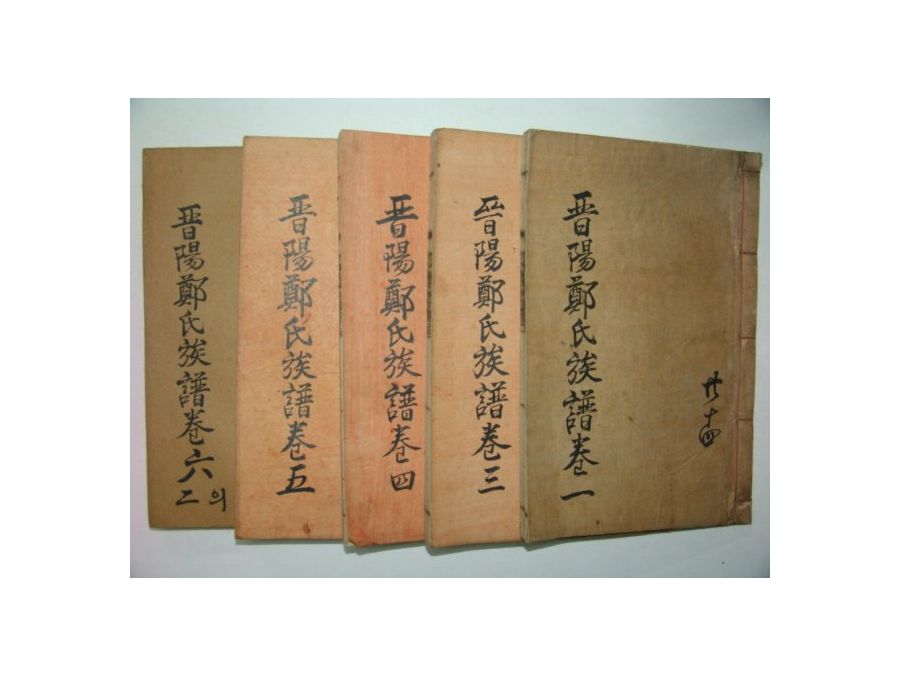 晋陽鄭氏族譜卷一
共十四
晉陽鄭氏族譜卷三
晋陽鄭氏族譜卷四
晋陽鄭氏族譜卷五
晋陽鄭氏族譜卷六의二